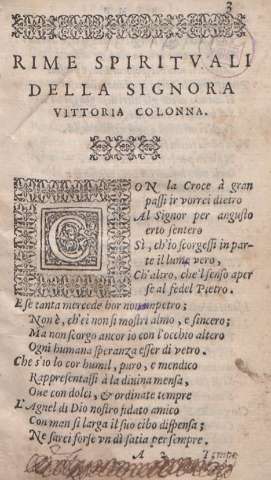 3
RIME SPIRITVALI
DELLA SIGNORA
VITTORIA COLONNA.
CON la Croce à gran
passi ir vorrei dietro
Al Signor per angusto
erto sentero
Sì, ch'io scorgessi in par-
te il lume vero,
Ch'altro, che'l senso aper
se al fedel Pietro.
E se tanta mercede hor non impetro;
Non è, ch'ei non si mostri almo, e sincero;
Ma non scorgo ancor io con l'occhio altero
Ogni humana speranza esser di vetro.
Che s'io lo cor humil, puro, e mendico
Rappresentassi à la diuina mensa,
Oue con dolci, & ordinate tempre
L'Agnel di Dio nostro fidato amico
Con man sì larga il suo cibo dispensa;
Ne sarei forse vn dì satia per sempre.
A 3 Tempo